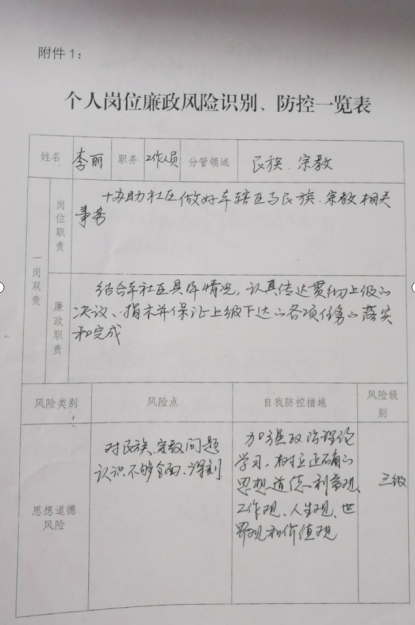 附件1：
个人岗位廉政风险识别、防控一览表
姓名 李丽 职务 工作人员 分管领域 民族、宗教
一岗双责
岗位职责
协助社区做好本辖区与民族、宗教相关
事务
廉政职责
结合本社区具体情况，认真传达贯彻上级的
决议、指示并保证上级下达的各项任务的落实
和完成
风险类别 风险点 自我防控措施 风险级别
思想道德
风险
对民族、宗教问题
认识不够全面、深刻
加强政治理论
学习，树立正确的
思想道德、利益观、
工作观、人生观、世
界观和价值观
三级